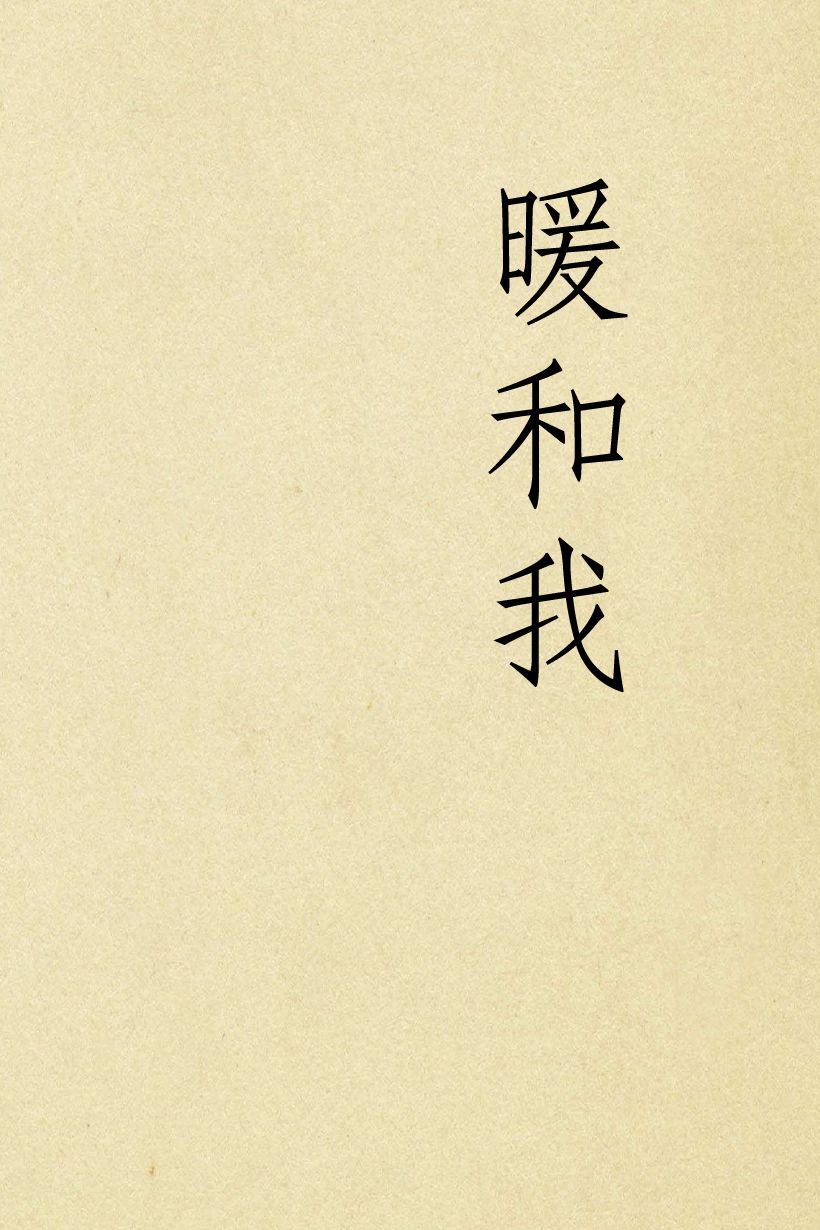 暖和我